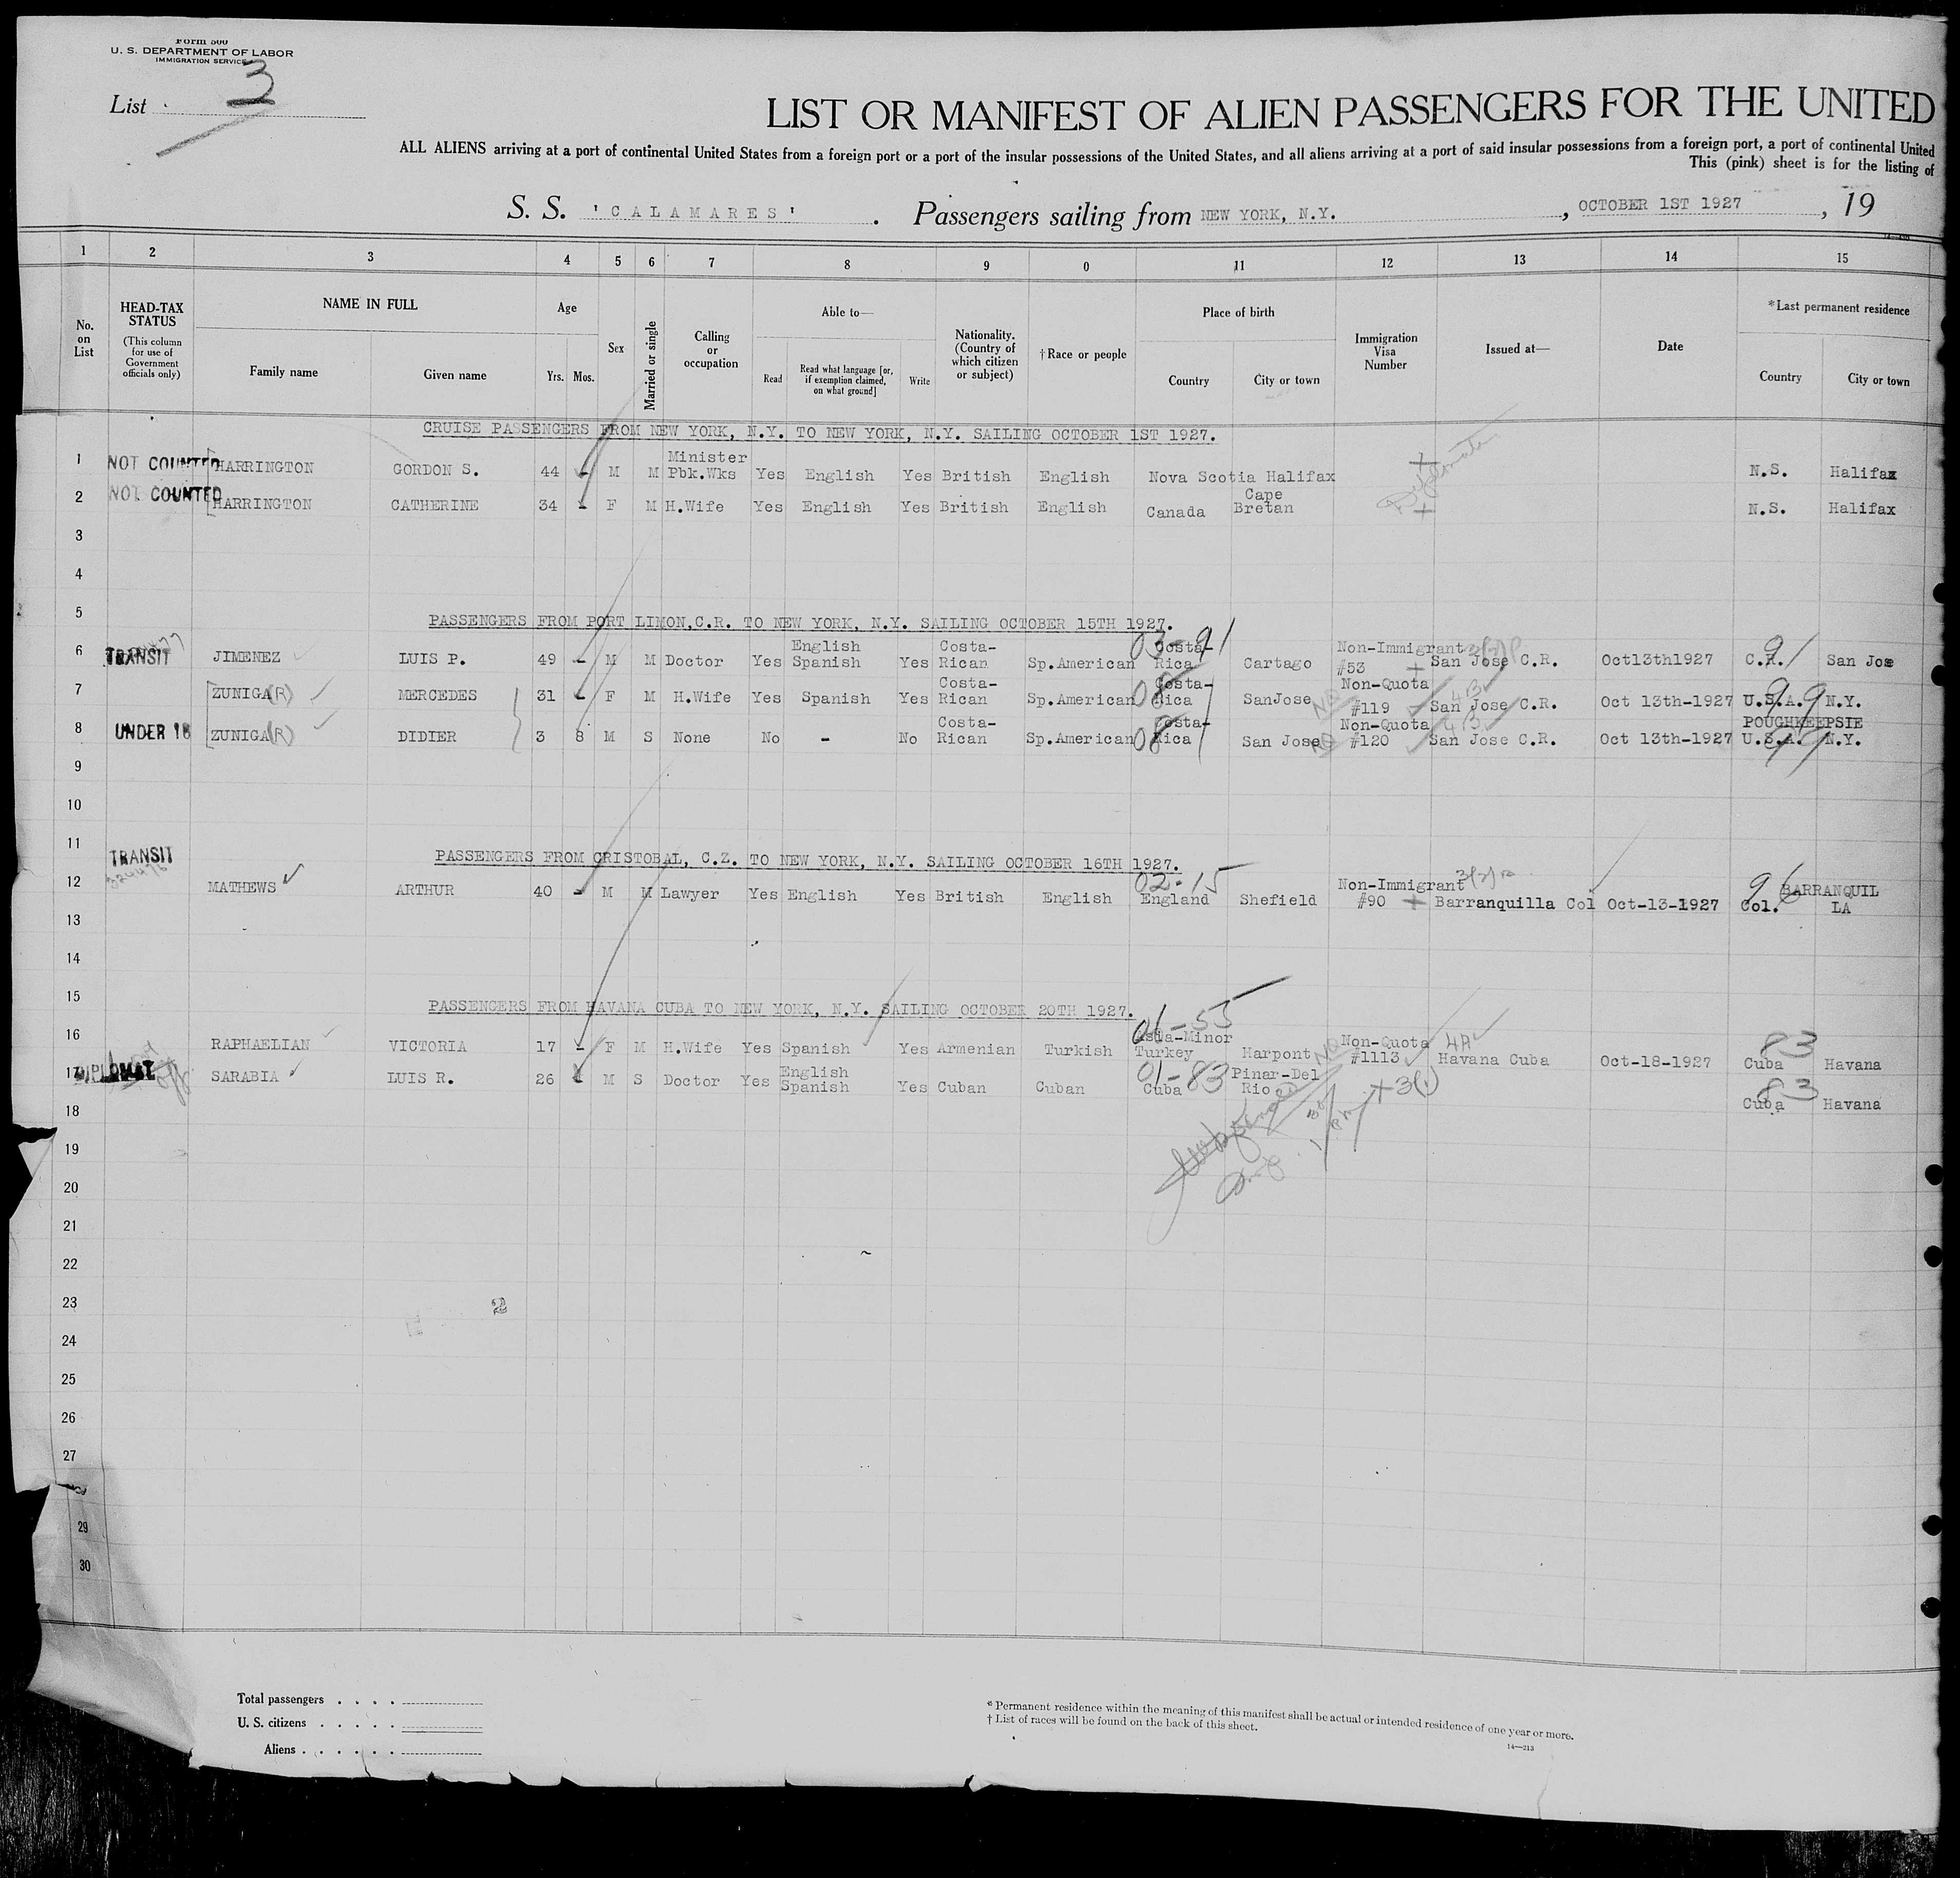 Form 500
U. S. DEPARTMENT OF LABOR
IMMIGRATION SERVICE
List 3
LIST OR MANIFEST OF ALIEN PASSENGERS FOR THE UNITED
ALL ALIENS arriving at a port of continental United States from a foreign port or a port of the insular possessions of the United States, and all aliens arriving at a port of said insular possessions from a foreign port, a port of continental United
This (pink) sheet is for the listing of
S. S. 'CALAMARES' . Passengers sailing from NEW YORK, N.Y. , OCTOBER 1ST 1927 , 19
1 2 3 4 5 6 7 8 9 0 11 12 13 14 15
No. on List
HEAD-TAX STATUS
(This column for use of Government officials only)
NAME IN FULL
Family name
Given name
Age
Yrs. Mos.
Sex
Married or single
Calling or occupation
Able to—
Read
Read what language [or, if exemption claimed, on what ground]
Write
Nationality. (Country of which citizen or subject)
†Race or people
Place of birth
Country
City or town
Immigration Visa Number
Issued at—
Date
*Last permanent residence
Country
City or town
CRUISE PASSENGERS FROM NEW YORK, N.Y. TO NEW YORK, N.Y. SAILING OCTOBER 1ST 1927.
1 NOT COUNTED HARRINGTON GORDON S. 44 - M M Minister Pbk.Wks Yes English Yes British English Nova Scotia Halifax N.S. Halifax
2 NOT COUNTED HARRINGTON CATHERINE 34 - F M H.Wife Yes English Yes British English Canada Cape Bretan N.S. Halifax
3
4
5
PASSENGERS FROM PORT LIMON,C.R. TO NEW YORK, N.Y. SAILING OCTOBER 15TH 1927.
03-91
6 TRANSIT JIMENEZ LUIS P. 49 - M M Doctor Yes English Spanish Yes Costa-Rican Sp.American Costa-Rica Cartago Non-Immigrant #53 San Jose C.R. Oct13th1927 C.R. 91 San Jos
7 ZUNIGA (R) MERCEDES 31 - F M H.Wife Yes Spanish Yes Costa-Rican Sp.American 08 Costa-Rica SanJose NQ Non-Quota #119 4B San Jose C.R. Oct 13th-1927 U.S.A. 99 N.Y.
POUGHKEEPSIE
8 UNDER 16 ZUNIGA (R) DIDIER 3 8 M S None No - No Costa-Rican Sp.American 08 Costa-Rica San Jose NQ Non-Quota #120 4B San Jose C.R. Oct 13th-1927 U.S.A. 99 N.Y.
9
10
11
PASSENGERS FROM CRISTOBAL, C.Z. TO NEW YORK, N.Y. SAILING OCTOBER 16TH 1927.
02-15
12 TRANSIT MATHEWS ARTHUR 40 - M M Lawyer Yes English Yes British English England Shefield Non-Immigrant #90 Barranquilla Col Oct-13-1927 Col. 96 BARRANQUIL LA
13
14
15
PASSENGERS FROM HAVANA CUBA TO NEW YORK, N.Y. SAILING OCTOBER 20TH 1927.
01-55
16 RAPHAELIAN VICTORIA 17 - F M H.Wife Yes Spanish Yes Armenian Turkish Asia-Minor Turkey Harpont NQ Non-Quota #1113 4A Havana Cuba Oct-18-1927 83 Cuba Havana
17 DIPLOMAT SARABIA LUIS R. 26 - M S Doctor Yes English Spanish Yes Cuban Cuban 01-83 Cuba Pinar-Del Rio +3(1)
18 83 Cuba Havana
19
20
21
22
23
2
24
25
26
27
29
30
Total passengers . . . .
U. S. citizens . . . . .
Aliens . . . . . .
* Permanent residence within the meaning of this manifest shall be actual or intended residence of one year or more.
† List of races will be found on the back of this sheet.
14—213